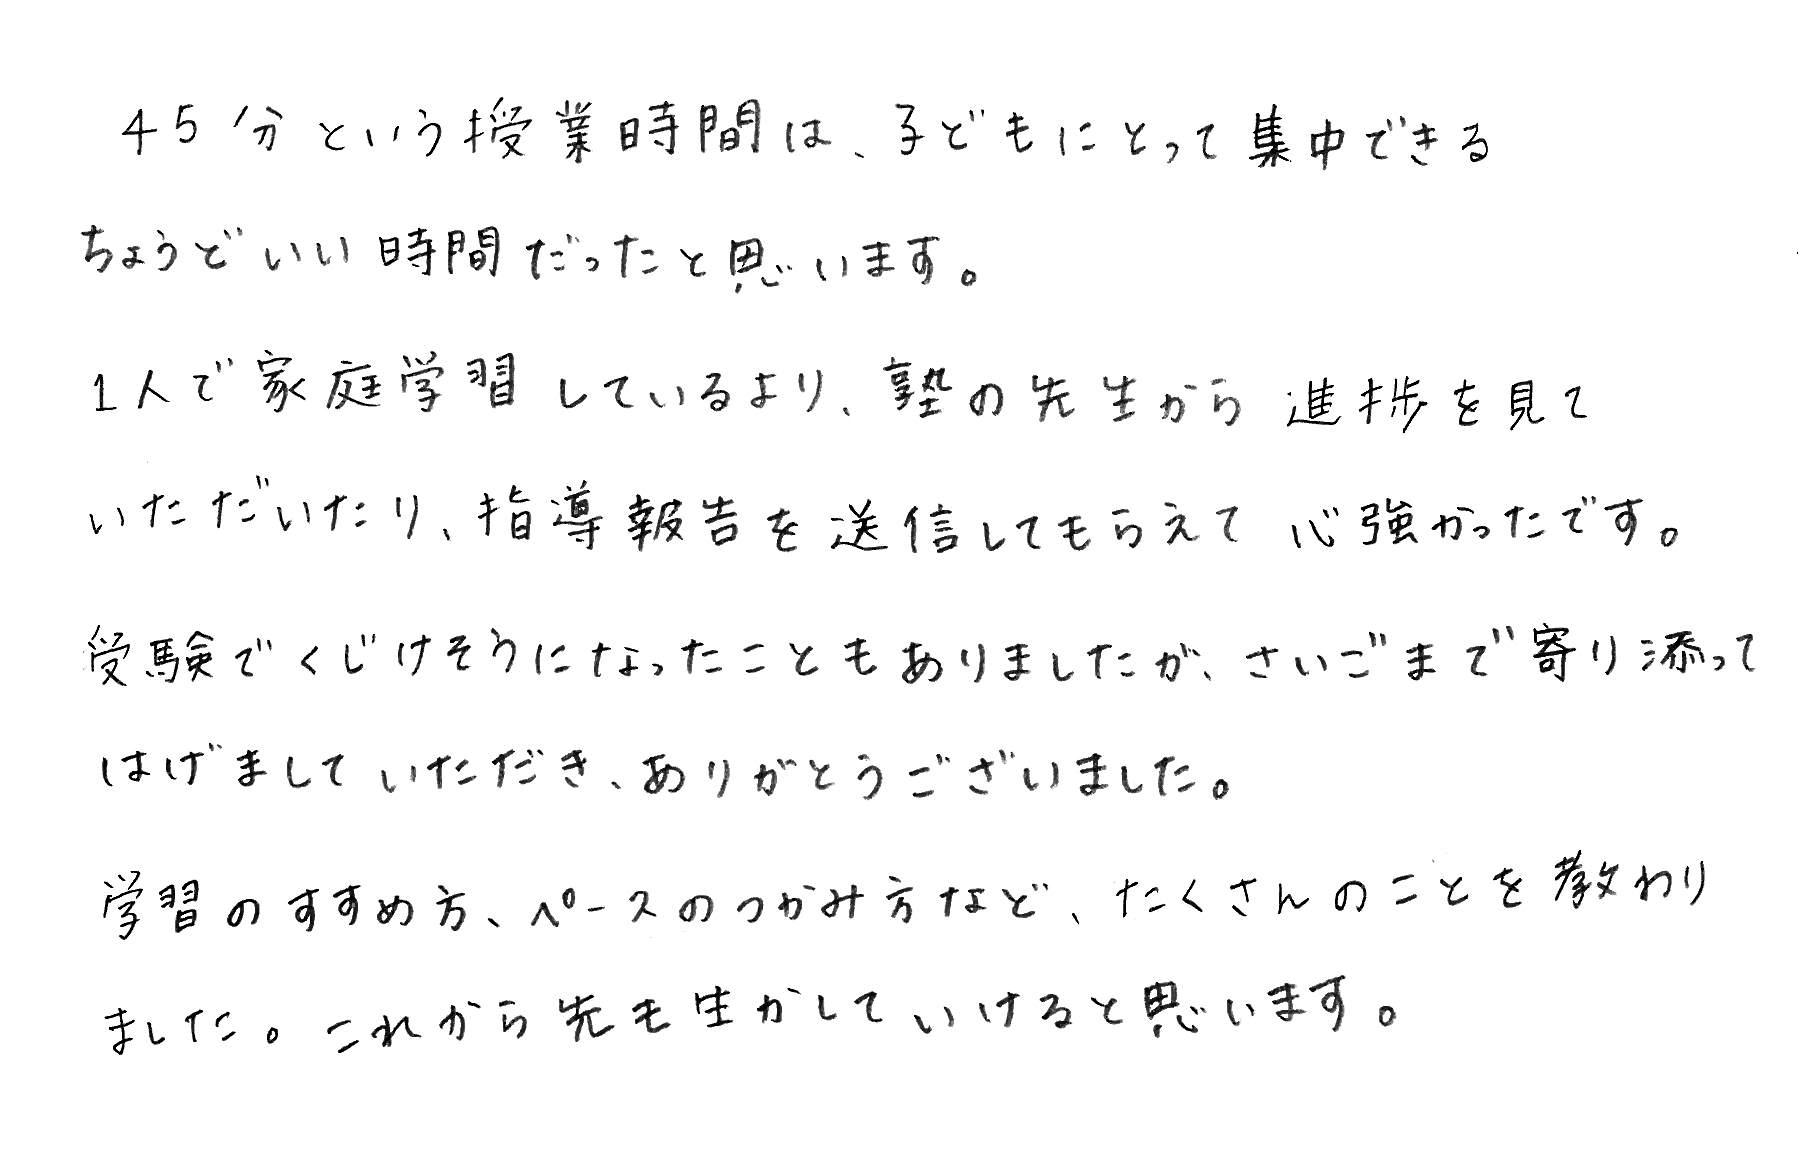 45分という授業時間は、子どもにとって集中できる
ちょうどいい時間だったと思います。
1人で家庭学習しているより、塾の先生から進捗を見て
いただいたり、指導報告を送信してもらえて心強かったです。
受験でくじけそうになったこともありましたが、さいごまで寄り添って
はげましていただき、ありがとうございました。
学習のすすめ方、ペースのつかみ方など、たくさんのことを教わり
ました。これから先も生かしていけると思います。